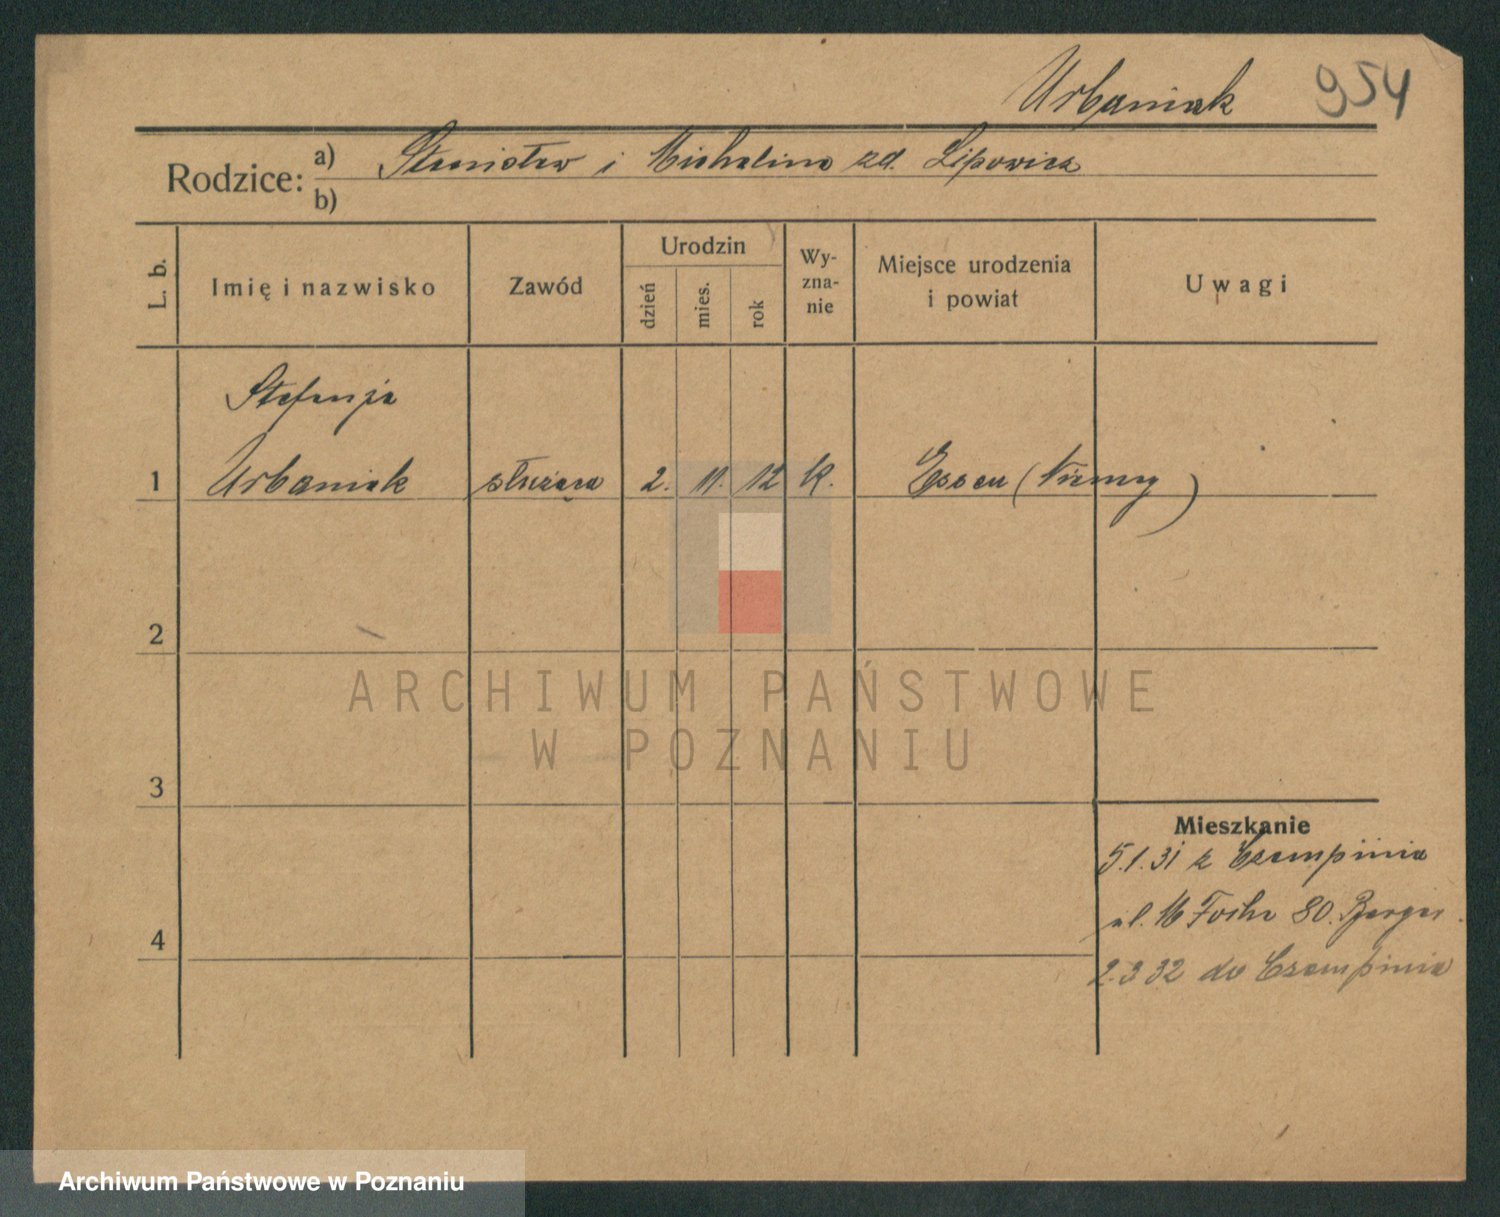 Urbaniak 954
Rodzice: a) Stanisław i Michalina zd. Lipowicz
b)
L. b. Imię i nazwisko Zawód Urodzin dzień mies. rok Wy-zna-nie Miejsce urodzenia i powiat Uwagi
Stefanja
1 Urbaniak służąca 2. 11. 12 k. Essen (Niemcy)
2
ARCHIWUM PAŃSTWOWE
W POZNANIU
3
Mieszkanie
5.1.31 z Czempinia
ul. M Focha 80.
4
2.3 32 do Czempinia
Archiwum Państwowe w Poznaniu